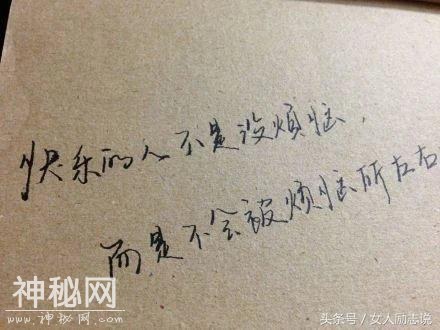 快乐的人不是没烦恼，
而是不会被烦恼所左右
神秘网
WWW.SHENMIW.COM
头条号/女人励志说